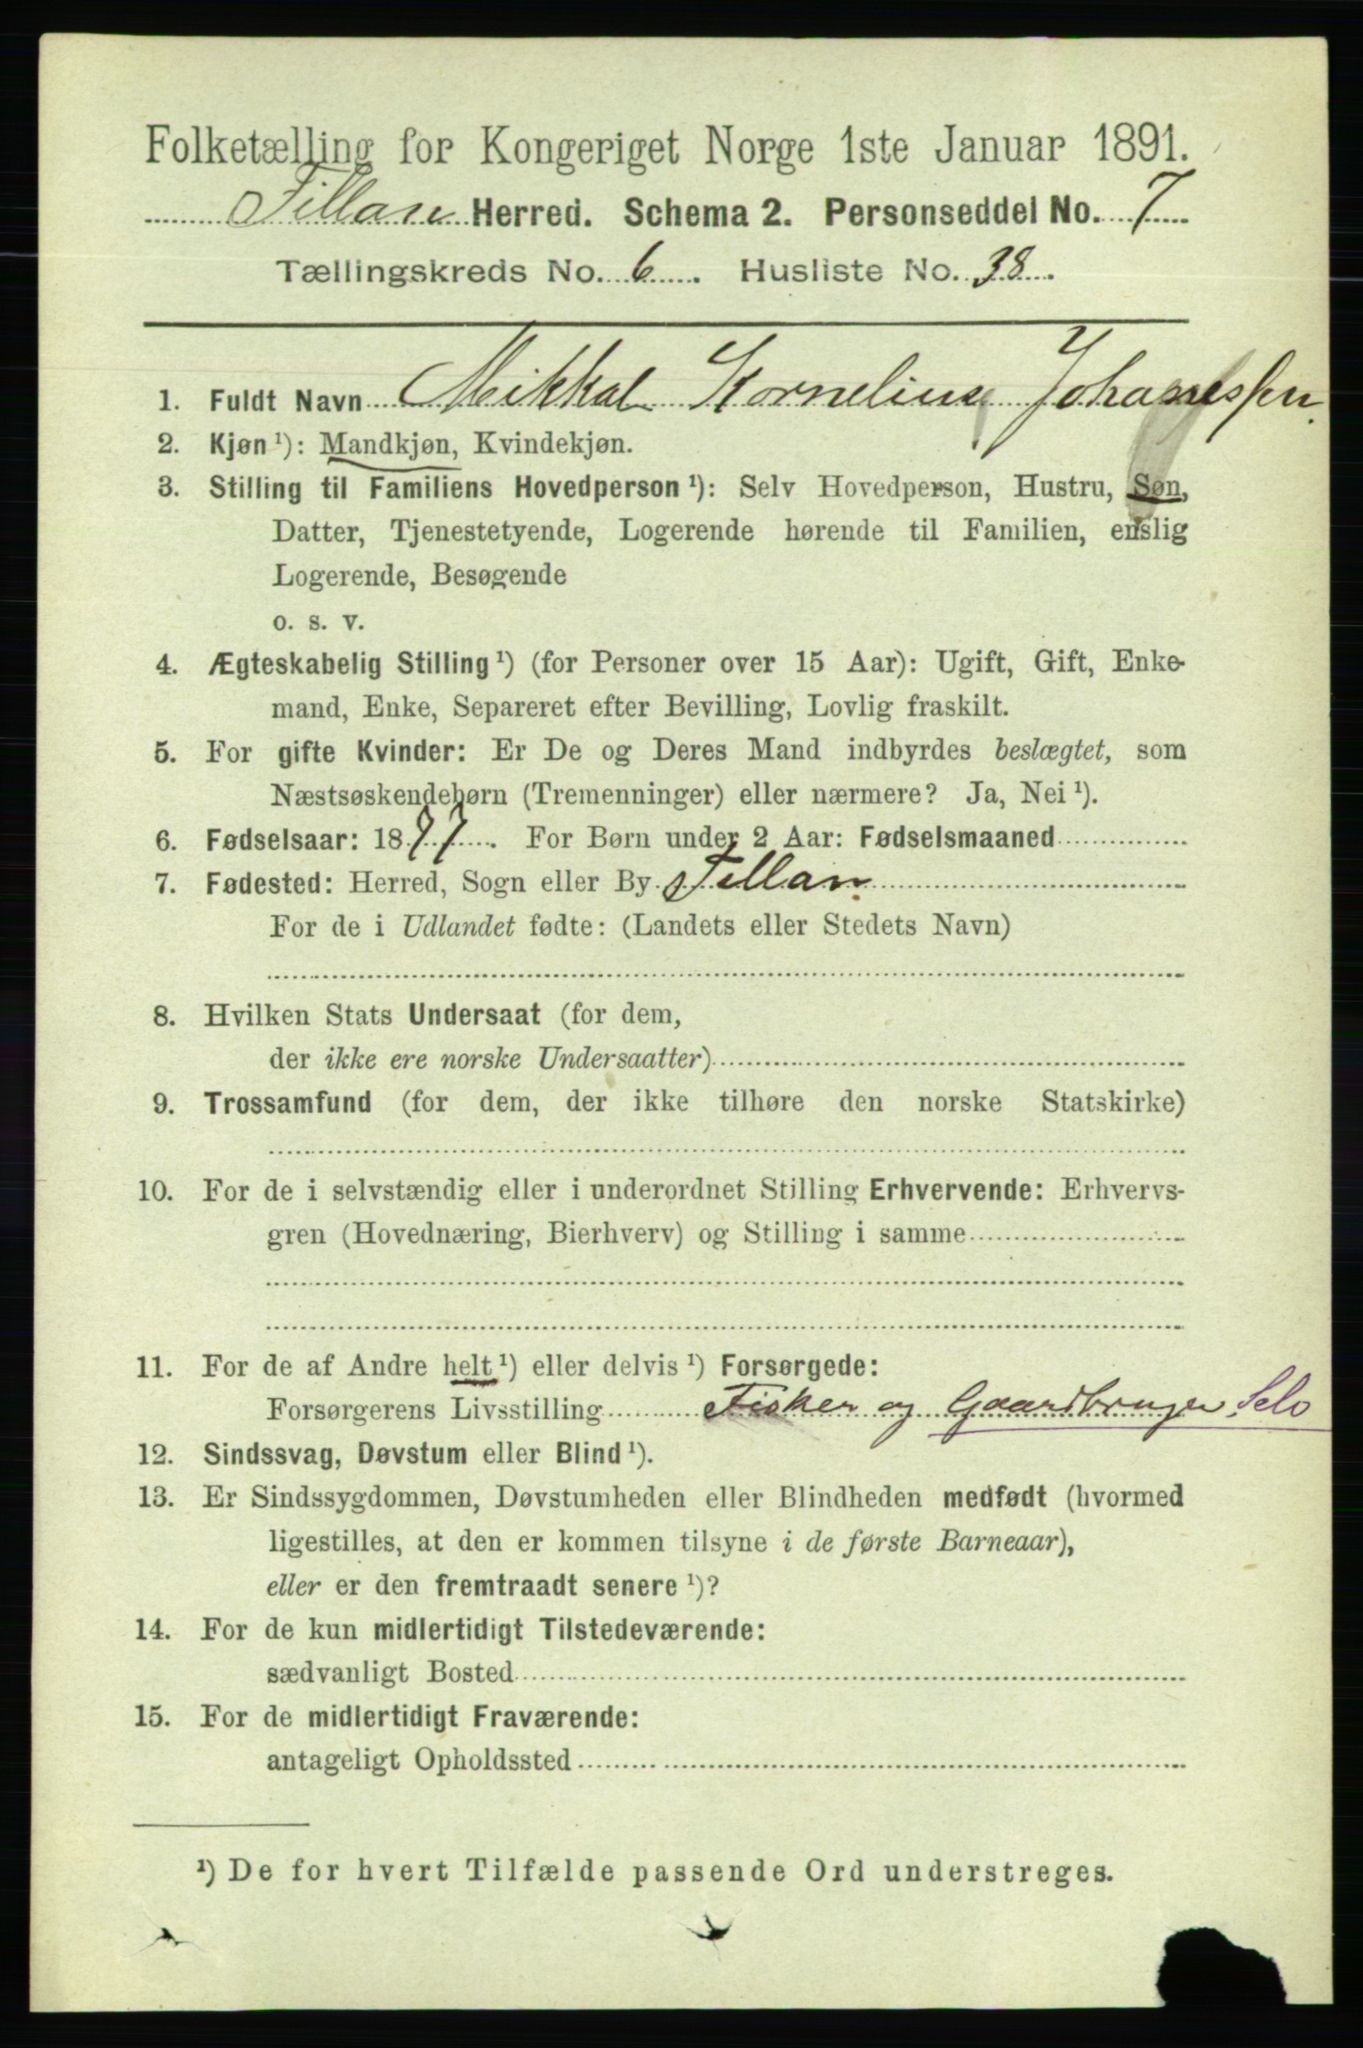 Folketælling for Kongeriget Norge 1ste Januar 1891.
Fillan Herred. Schema 2. Personseddel No. 7
Tællingskreds No. 6. Husliste No. 38.
1. Fuldt Navn Mikkal Kornelius Johanessen.
2. Kjøn ¹): Mandkjøn, Kvindekjøn.
3. Stilling til Familiens Hovedperson ¹): Selv Hovedperson, Hustru, Søn,
Datter, Tjenestetyende, Logerende hørende til Familien, enslig
Logerende, Besøgende
o. s. v.
4. Ægteskabelig Stilling ¹) (for Personer over 15 Aar): Ugift, Gift, Enke-
mand, Enke, Separeret efter Bevilling, Lovlig fraskilt.
5. For gifte Kvinder: Er De og Deres Mand indbyrdes beslægtet, som
Næstsøskendebørn (Tremenninger) eller nærmere? Ja, Nei ¹).
6. Fødselsaar: 1877. For Børn under 2 Aar: Fødselsmaaned
7. Fødested: Herred, Sogn eller By Fillan
For de i Udlandet fødte: (Landets eller Stedets Navn)
8. Hvilken Stats Undersaat (for dem,
der ikke ere norske Undersaatter)
9. Trossamfund (for dem, der ikke tilhøre den norske Statskirke)
10. For de i selvstændig eller i underordnet Stilling Erhvervende: Erhvervs-
gren (Hovednæring, Bierhverv) og Stilling i samme
11. For de af Andre helt ¹) eller delvis ¹) Forsørgede:
Forsørgerens Livsstilling Fisker og Gaardbruger Selv
12. Sindssvag, Døvstum eller Blind ¹).
13. Er Sindssygdommen, Døvstumheden eller Blindheden medfødt (hvormed
ligestilles, at den er kommen tilsyne i de første Barneaar),
eller er den fremtraadt senere ¹)?
14. For de kun midlertidigt Tilstedeværende:
sædvanligt Bosted
15. For de midlertidigt Fraværende:
antageligt Opholdssted
¹) De for hvert Tilfælde passende Ord understreges.